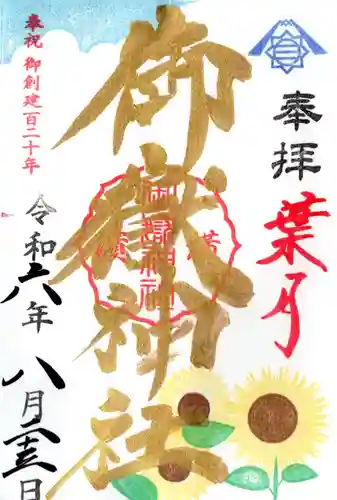 奉拝
葉月
御嶽神社
奉祝 御創建百二十年
令和六年 八月二十三日